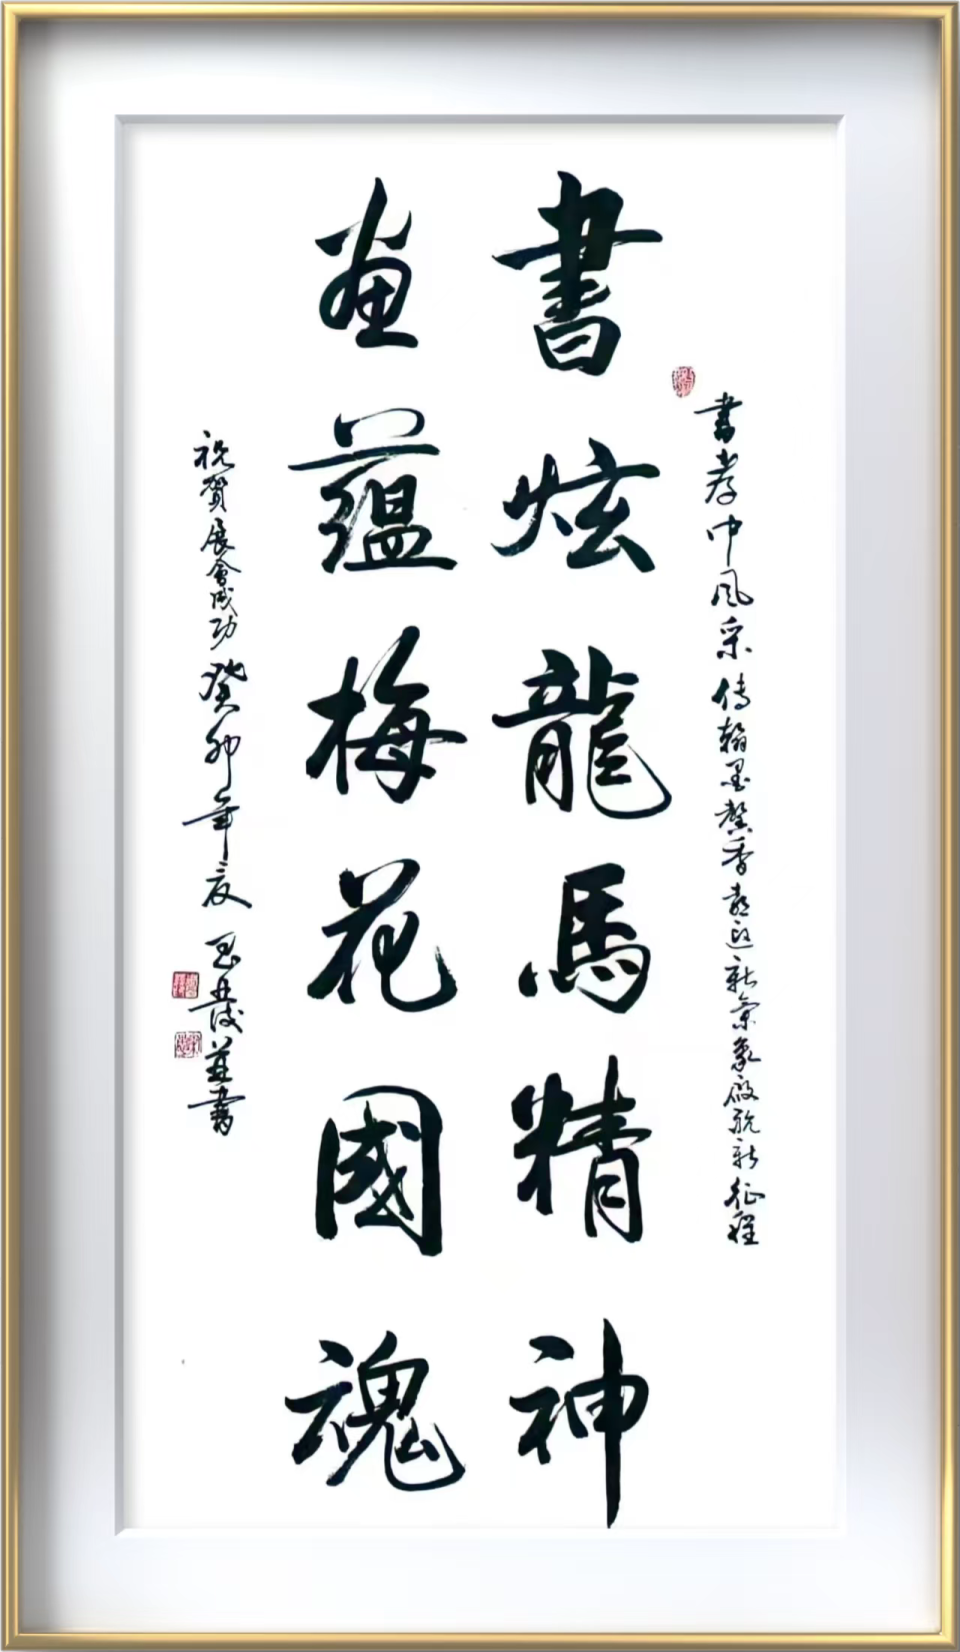 書孝中風采傳翰墨馨香喜迎新气象啟航新征程
書炫龍馬精神
畫蘊梅花國魂
祝賀展會成功癸卯年夏
並書